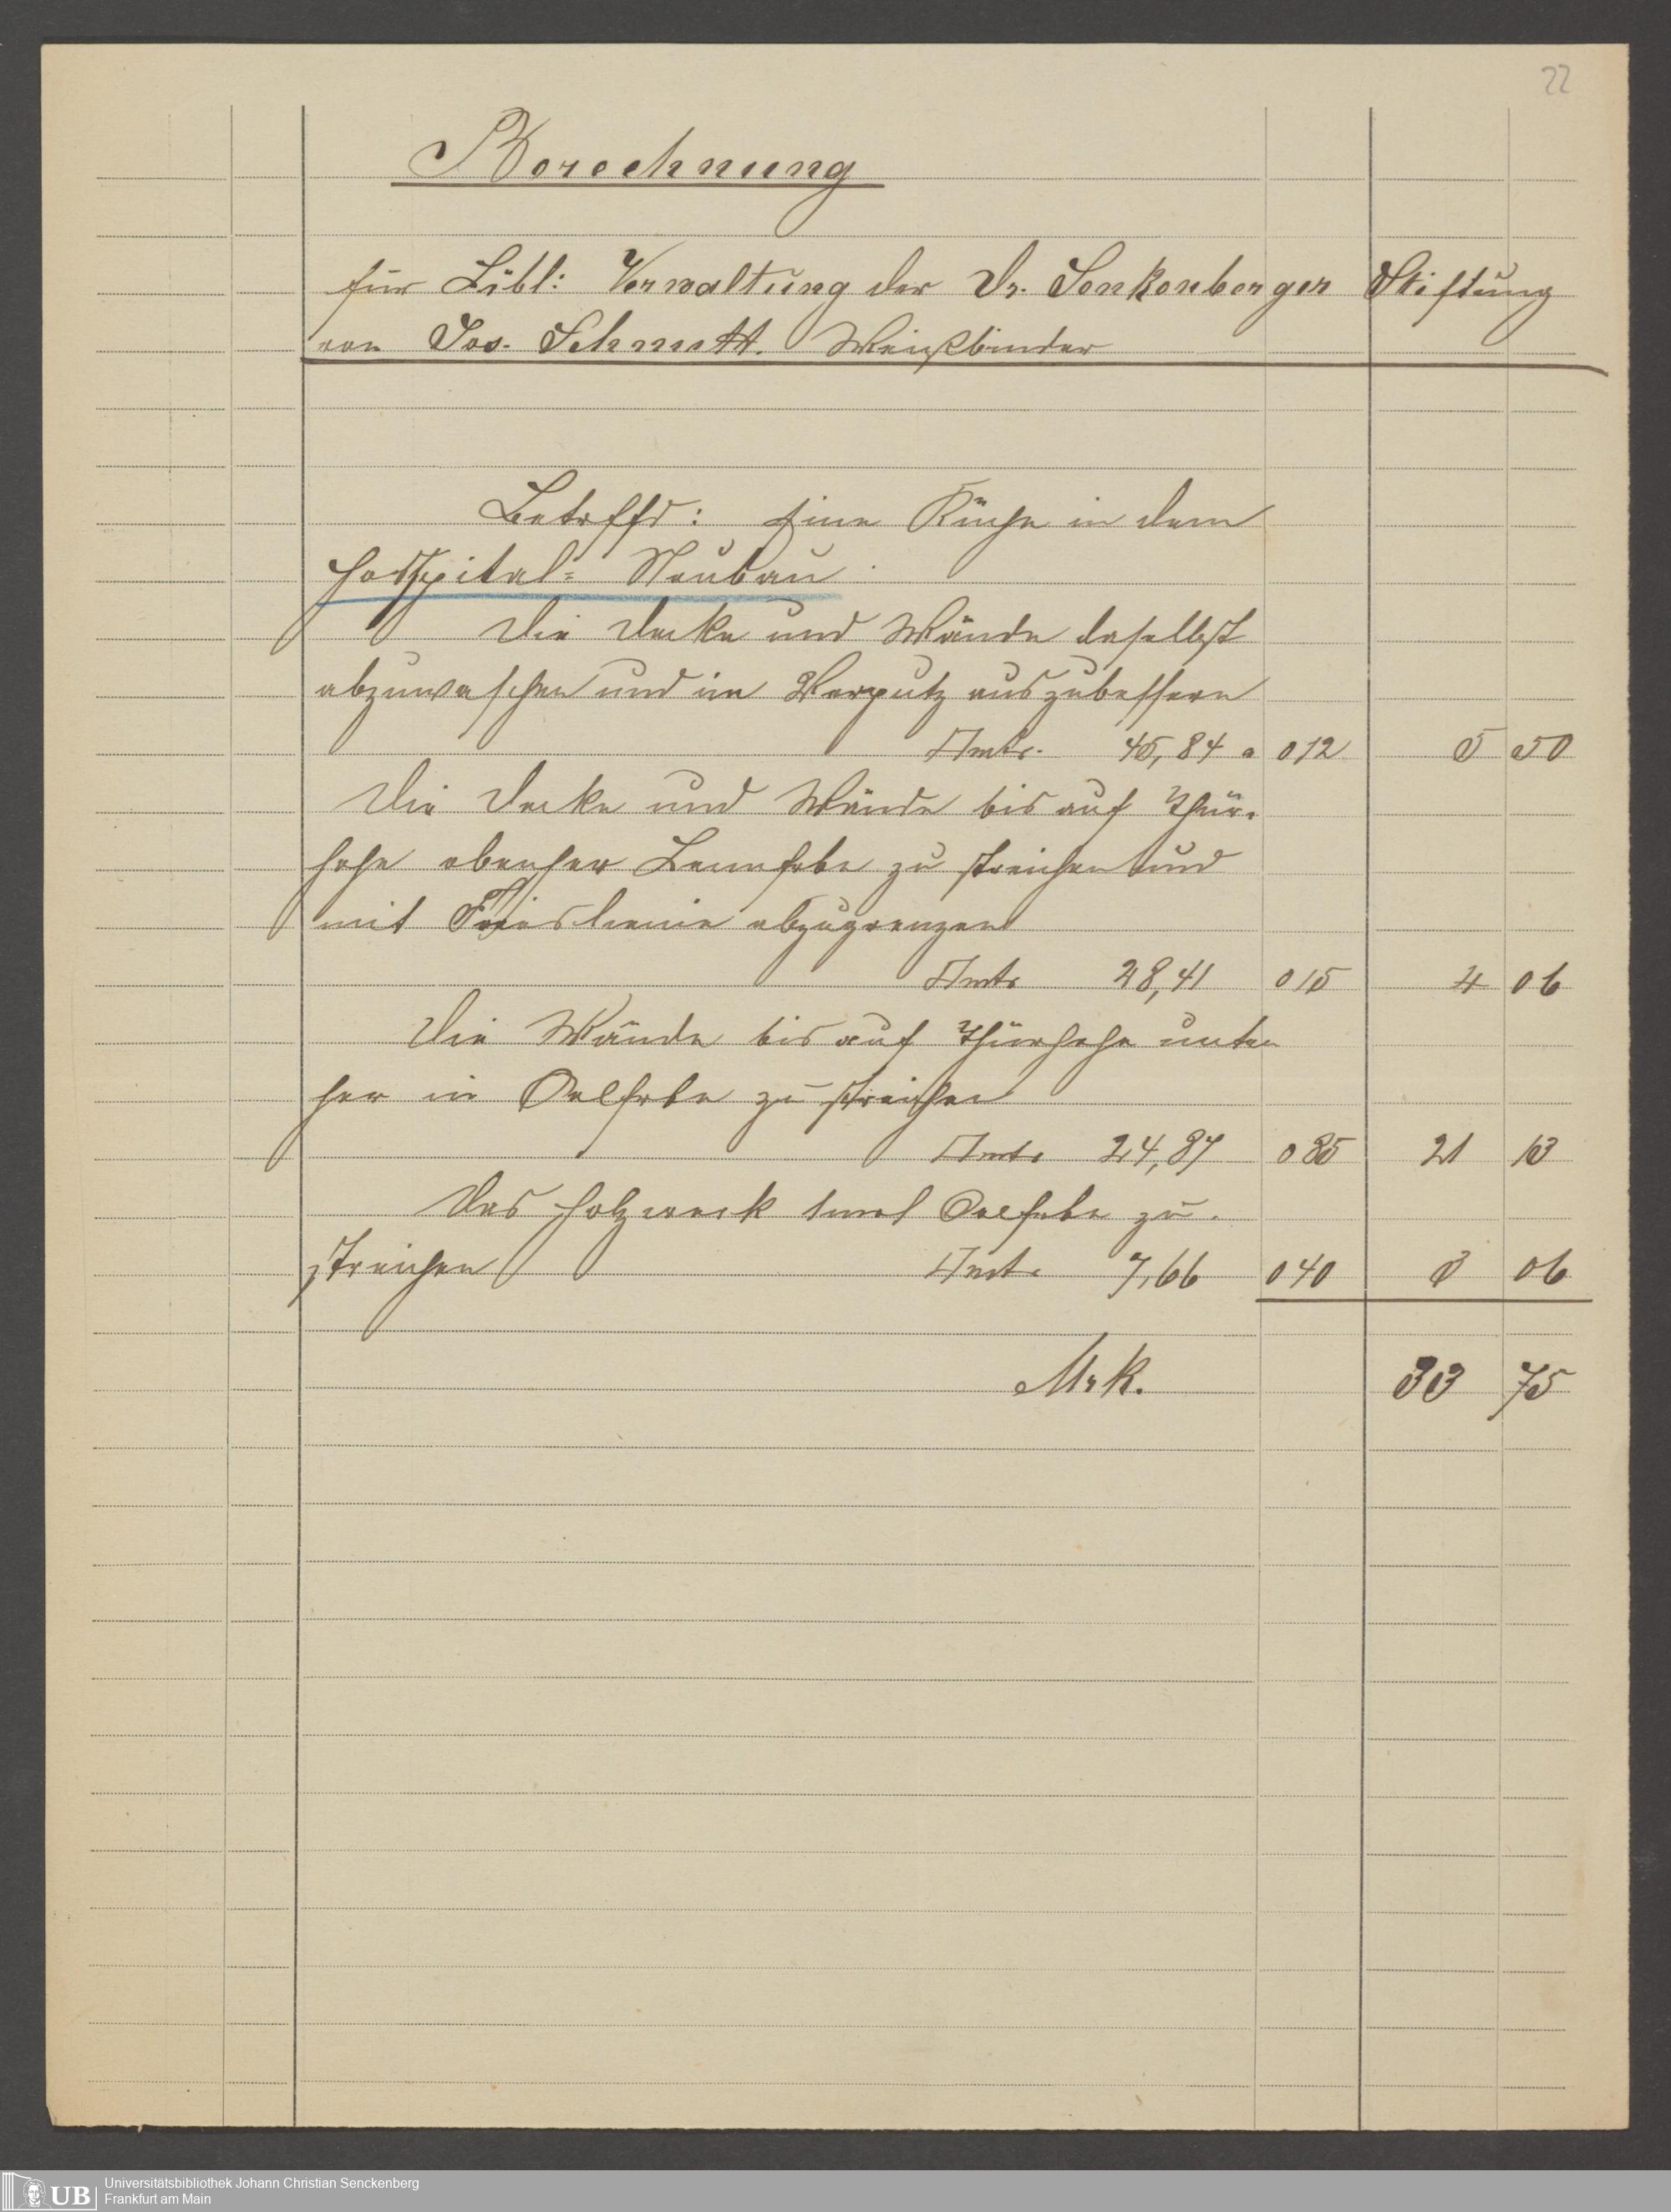 22
Berechnung
für Löbl: Verwaltung der Dr. Senkenberger Stiftung
von Jos. Schmitt. Weißbinder
Betrffd: eine Küche in dem
Hospital= Neubau.
Die Decke und Wände daselbst
abzuwaschen und im Verputz auszubessern
□mtr. 45,84 a 012 5 50
Die Decke und Wände bis auf Thür-
hohe obenher Leimfrbe zu streichen und
mit Frieslienie abzugrenzen
□mtr 28,41 015 4 06
Die Wände bis auf Thürhohe unten
her in Oelfrbe zu streichen
□mtr 24,87 085 21 13
Das Holzwerk 1mal Oelfrbe zu.
streichen □mtr 7,66 040 3 06
Mrk. 33 75
UB Universitätsbibliothek Johann Christian Senckenberg
Frankfurt am Main